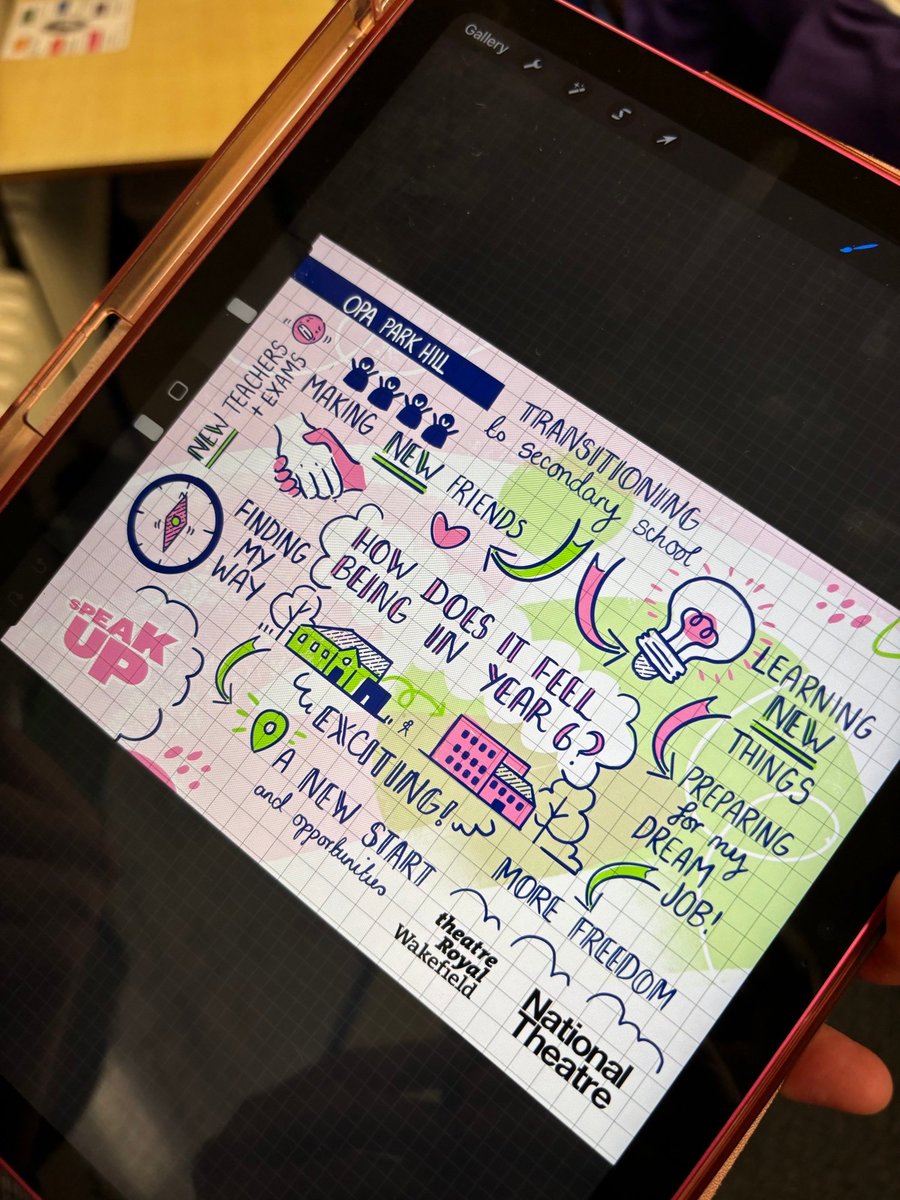 Gallery
OPA PARK HILL
NEW TEACHERS
+ EXAMS
MAKING NEW FRIENDS
TRANSITIONING
to secondary school
FINDING
MY
WAY
HOW DOES IT FEEL
BEING IN YEAR 6?
LEARNING
NEW
THINGS
SPEAK
UP
EXCITING!
PREPARING
for my
DREAM
JOB!
A NEW START
and opportunities
MORE FREEDOM
theatre
Royal
Wakefield
National
Theatre